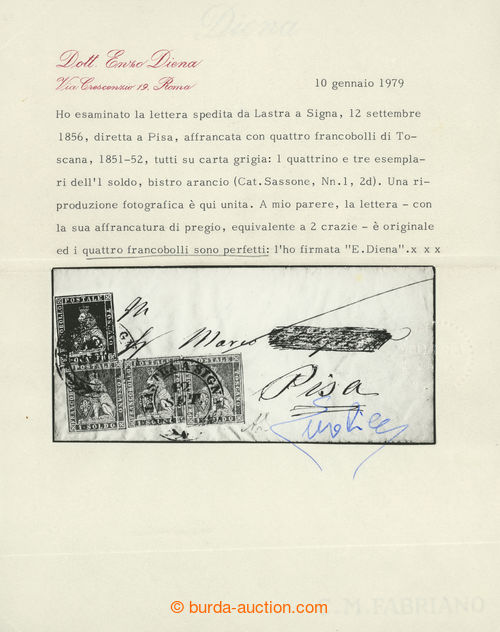 Diena
Dott. Enzo Diena
Via Crescenzio 19. Roma
10 gennaio 1979
Ho esaminato la lettera spedita da Lastra a Signa, 12 settembre
1856, diretta a Pisa, affrancata con quattro francobolli di To-
scana, 1851-52, tutti su carta grigia: 1 quattrino e tre esempla-
ri dell'1 soldo, bistro arancio (Cat.Sassone, Nn.1, 2d). Una ri-
produzione fotografica è qui unita. A mio parere, la lettera - con
la sua affrancatura di pregio, equivalente a 2 crazie - è originale
ed i quattro francobolli sono perfetti: l'ho firmata "E.Diena".x x x
POSTALE
Marco
Pisa
1 SOLDO 1 SOLDO 1 SOLDO
C.M.FABRIANO
© burda-auction.com